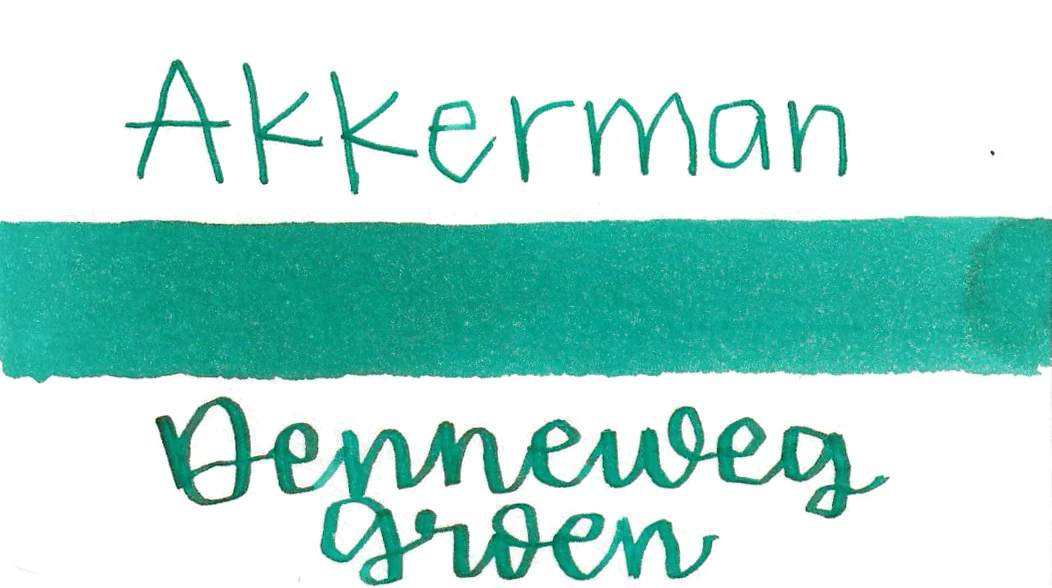 Akkerman
Denneweg
groen